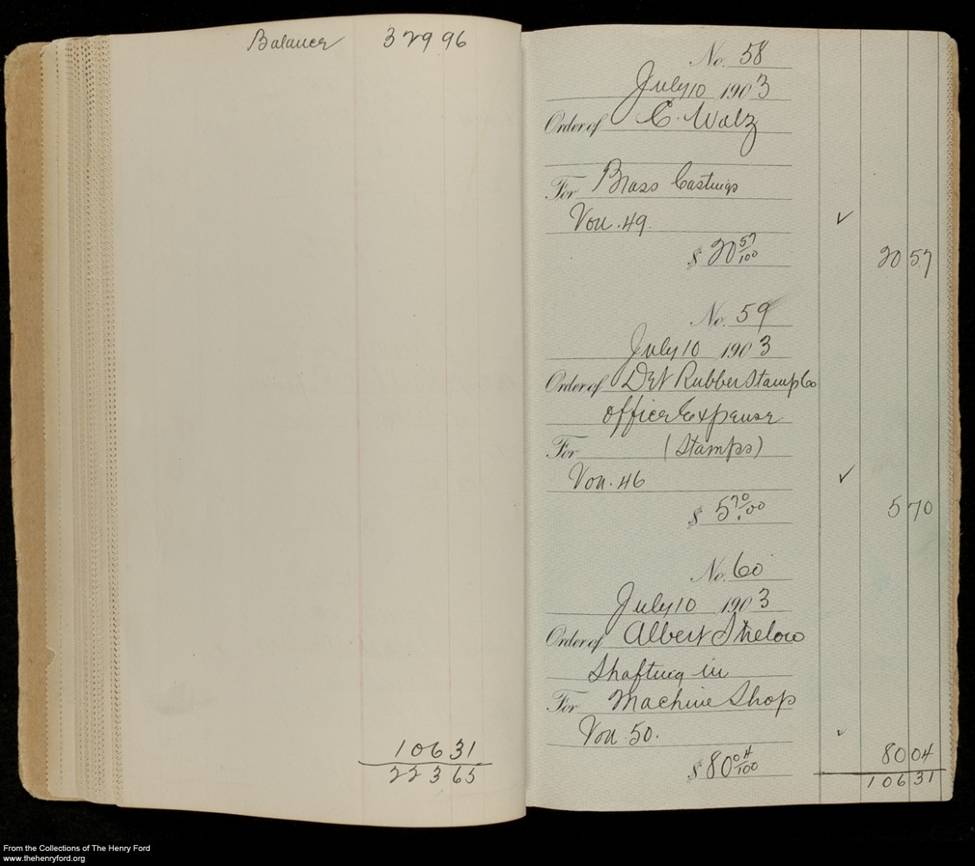 Balance 329 96
106 31
223 65
No. 58
July 10 1903
Order of C. Walz
For Brass Castings
Vou. 49.
$ 20 57/100
20 57
No. 59
July 10 1903
Order of Det Rubber Stamp Co
Office Expense
For (Stamps)
Vou. 46
$ 5 70/100
5 70
No. 60
July 10 1903
Order of Albert Strelow
Shafting in
For Machine Shop
Vou. 50.
$ 80 04/100
80 04
106 31
From the Collections of The Henry Ford
www.thehenryford.org